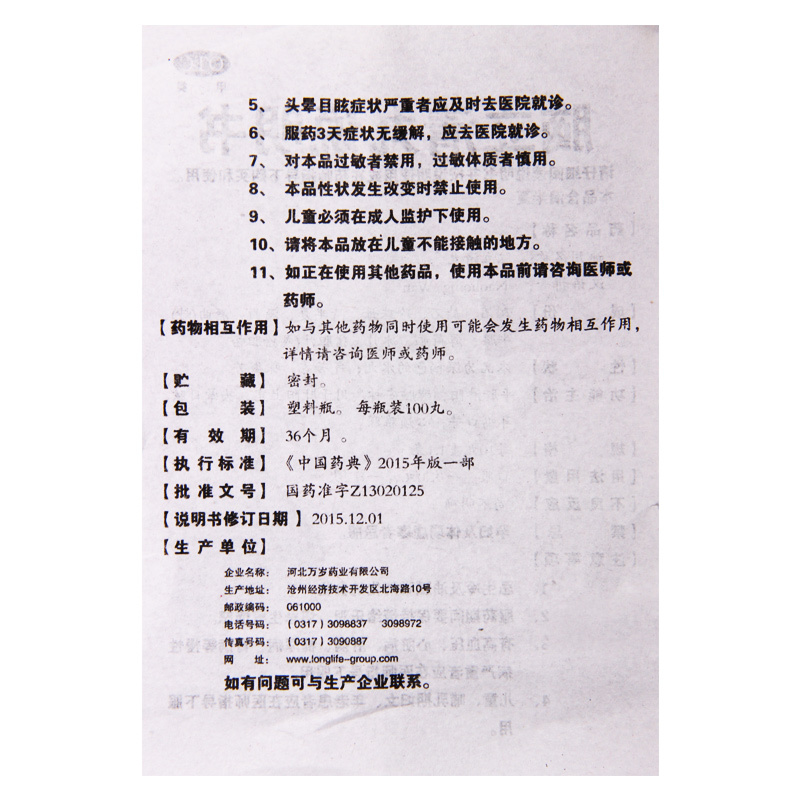 5、 头晕目眩症状严重者应及时去医院就诊。
6、 服药3天症状无缓解，应去医院就诊。
7、 对本品过敏者禁用，过敏体质者慎用。
8、 本品性状发生改变时禁止使用。
9、 儿童必须在成人监护下使用。
10、请将本品放在儿童不能接触的地方。
11、如正在使用其他药品，使用本品前请咨询医师或
药师。
【药物相互作用】如与其他药物同时使用可能会发生药物相互作用，
详情请咨询医师或药师。
【贮 藏】 密封。
【包 装】 塑料瓶。 每瓶装100丸。
【有 效 期】 36个月 。
【执行标准】《中国药典》2015年版一部
【批准文号】 国药准字Z13020125
【说明书修订日期】2015.12.01
【生产单位】
企业名称： 河北万岁药业有限公司
生产地址： 沧州经济技术开发区北海路10号
邮政编码： 061000
电话号码： （0317）3098837 3098972
传真号码： （0317）3090887
网 址： www.longlife-group.com
如有问题可与生产企业联系。